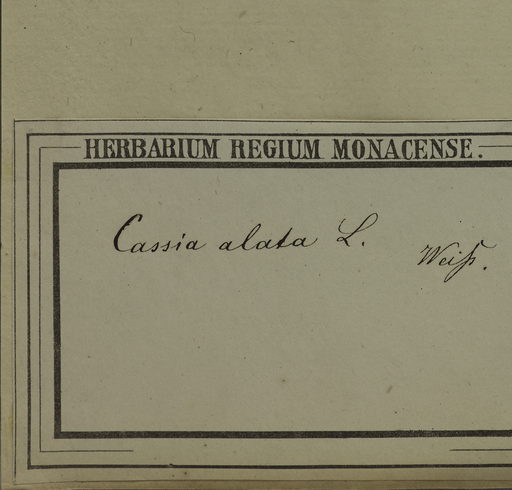 HERBARIUM REGIUM MONACENSE.
Cassia alata L.
Weiß.